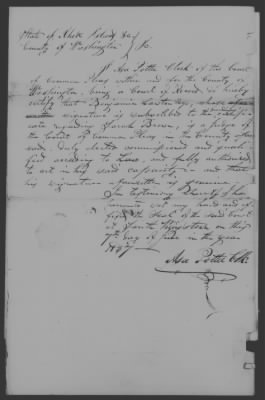 State of Rhode Island &
County of Washington } Ss.
I Asa Potter Clerk of the Court
of Common Pleas within and for the County of
Washington, being a Court of Record do hereby
certify that Benjamin whose
signature is subscribed to the
regarding Sarah Brown, is a Judge of
the Court of Common Pleas in the County afore
said. Duly elected commissioned and quali
fied according to Law, and fully authorized
to act in his said capacity, and that
his signature is genuine.
In testimony whereof I have
set my hand and af
fixed the Seal of the said Court
at South Kingstown on this
7th day of June in the year
1837
Asa Potter Clk.